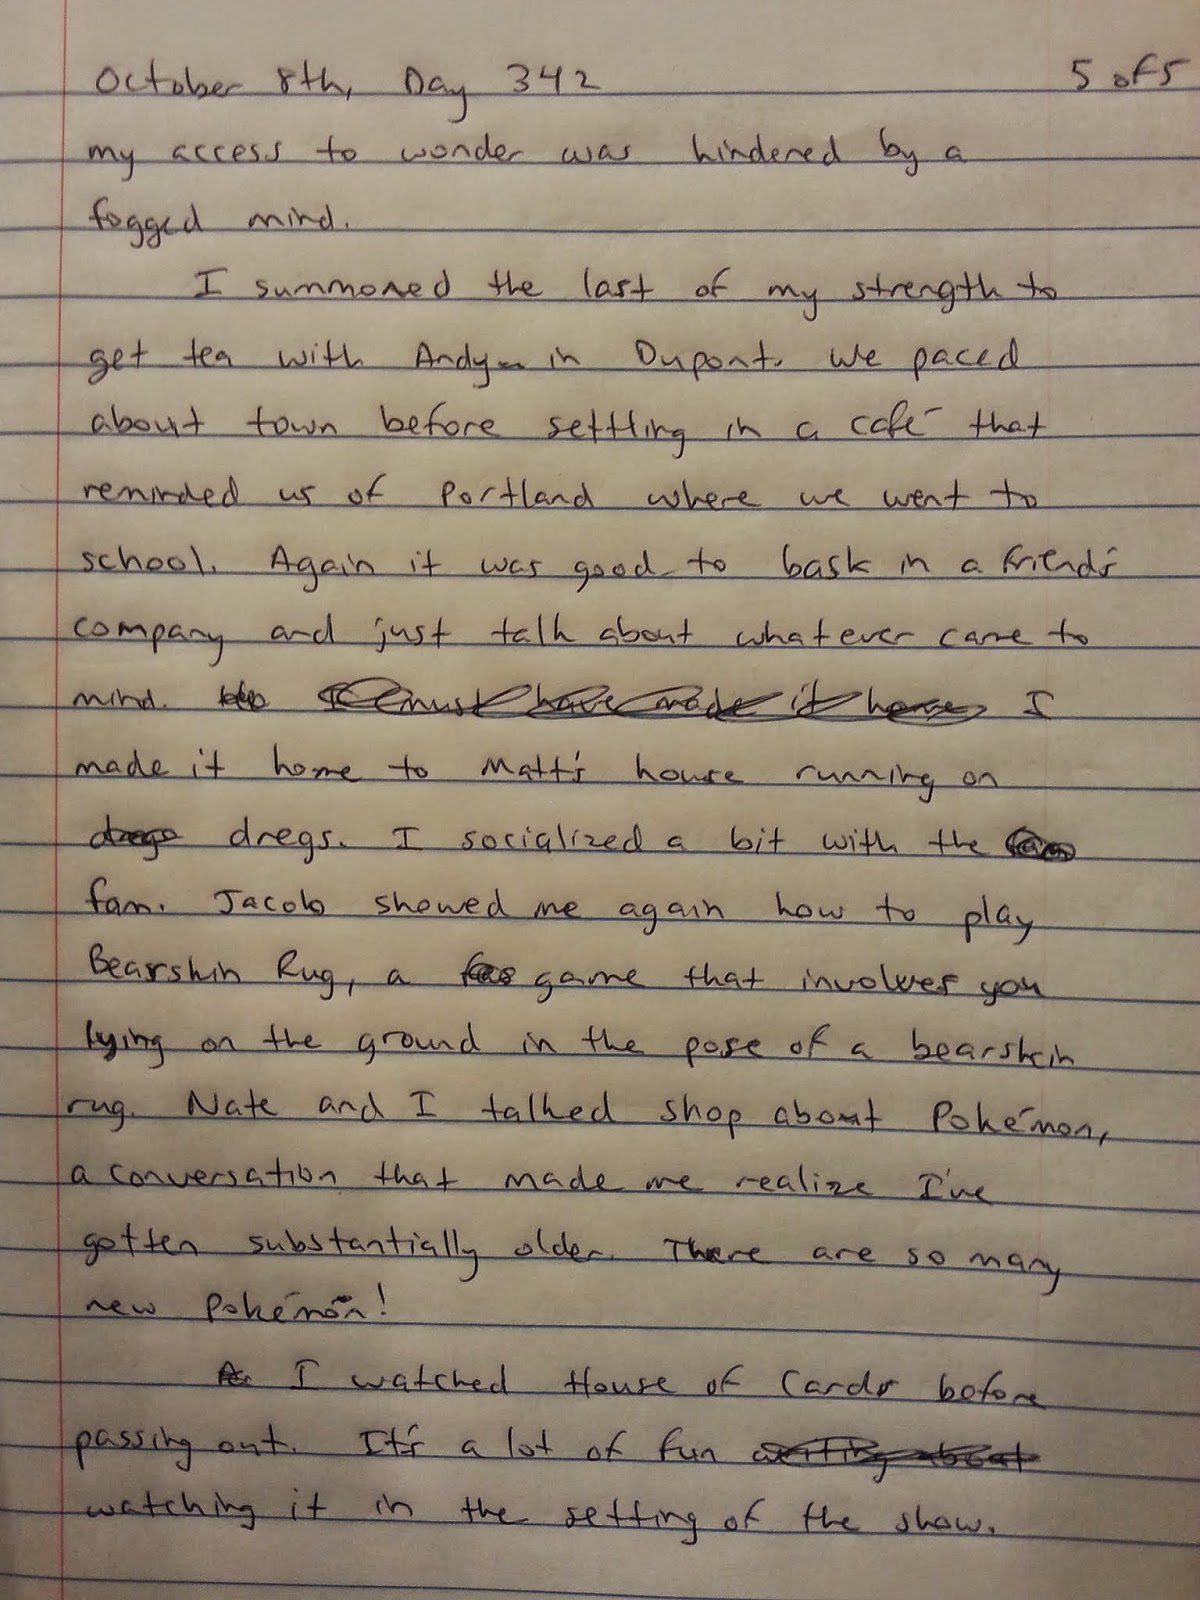 October 8th, Day 342 5 of 5
my access to wonder was hindered by a
fogged mind.
I summoned the last of my strength to
get tea with Andy in Dupont. We paced
about town before settling in a café that
reminded us of Portland where we went to
school. Again it was good to bask in a friend's
company and just talk about whatever came to
mind. I must have made it home I
made it home to Matt's house running on
dregs dregs. I socialized a bit with the
fam. Jacob showed me again how to play
Bearskin Rug, a game that involves you
lying on the ground in the pose of a bearskin
rug. Nate and I talked shop about Pokémon,
a conversation that made me realize I've
gotten substantially older. There are so many
new Pokémon!
I watched House of Cards before
passing out. It's a lot of fun
watching it in the setting of the show.